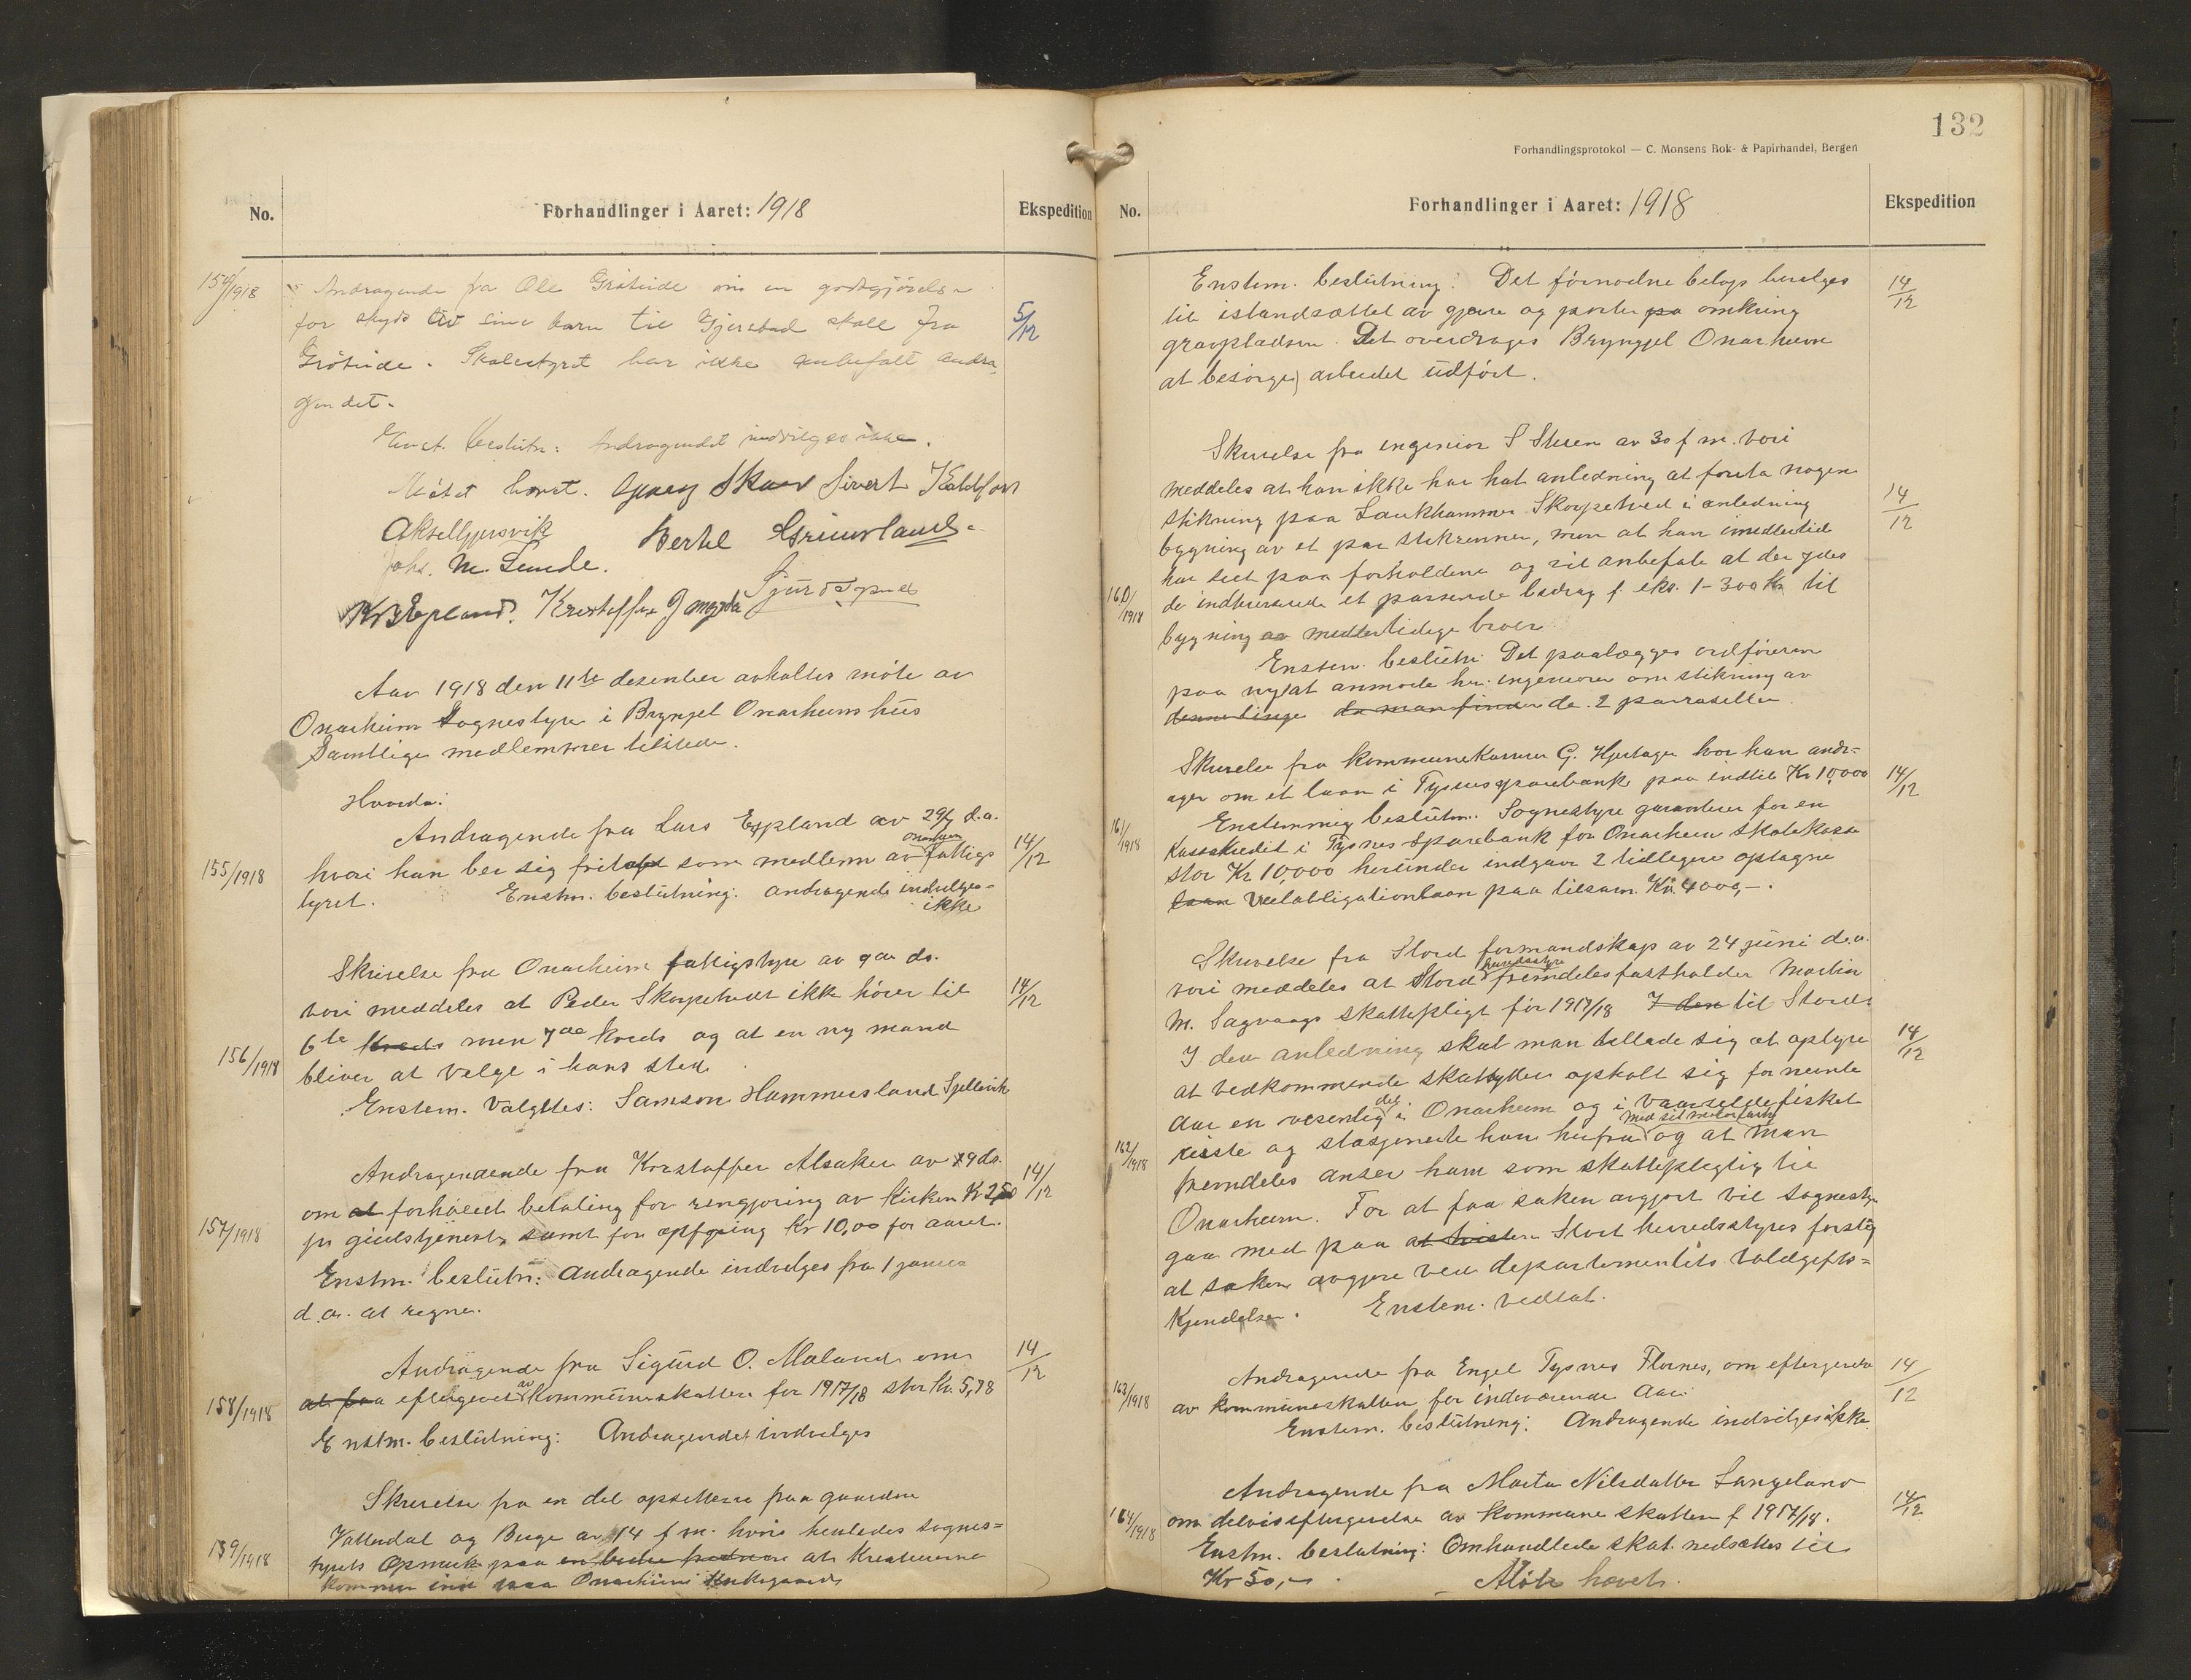 No. Forhandlinger i Aaret: 1918 Ekspedition
154/1918 Andragende fra Ole Gröteide om en godtgjörelse
for skyds av sine barn til Gjerstad skole fra 5/12
Gröteide. Skolestyret har ikke anbefalt andra
gendet.
Enst. beslutn: Andragendet indvilges ikke.
Mötet hævet. Georg Skaar Sivert Koldfoss
Aksel Gjersvik Bertel Grimsland.
Johs. M. Lunde.
Kr. B. Epland. Kristoffer
Aar 1918 den 11te desember avholtes möte av
Onarheim Sognestyre i Brynjel Onarheims hus
Samtlige medlemmer tilstede.
Hvorda:
Andragende fra Lars Eppland av 29/7 d.a.
155/1918 hvori han ber sig fritat som medlem av Onarheim fattigs 14/12
tyret. Enstm. beslutning: andragende indvilges
ikke
Skrivelse fra Onarheim fattigstyre av 9de ds.
vori meddeles at Peder Skorpetvedt ikke hörer til 14/12
6te kreds men 7de kreds og at en ny mand
156/1918 bliver at velge i hans sted
Enstem. Valgtes: Samson Hammersland Spillevik
Andragendende fra Kristoffer Alsaker av 9 ds.
om at forhöiet betaling for rengjöring av kirken Kr 2,50 14/12
157/1918 pr gudstjeneste samt for opfyring kr 10,00 for aaret.
Enstm. beslutn: Andragende indvilges fra 1 januar
d.a. at regne.
Andragende fra Sigurd O. Maland om 14/12
158/1918 at faa eftergivet av kommuneskatten for 1917/18 stor Kr. 5,78
Enstm. beslutning: Andragendet indvilges
Skrivelse fra en del opsittere paa gaardene
Vattedal og Berge av 14 f m. hvori henledes sognes=
159/1918 tyrets Opmerk paa at Kreaturerne
kommer ind paa Onarheims Kirkegaard
132
Forhandlingsprotokol — C. Monsens Bok- & Papirhandel, Bergen
No. Forhandlinger i Aaret: 1918 Ekspedition
Enstem. beslutning: Det fornodne belöp bevilges 14/12
til istandsættel av gjerde og porter pa omkring
gravpladsen. Det overdrages Brynjel Onarheim
at besörge arbeidet udfört.
Skrivelse fra ingeniör S Steen av 30 f m. vori
meddeles at han ikke har hat anledning at foreta nogen
stikning paa Laukhammer Skorpetved i anledning 14/12
bygning av et par stikrenner, men at han imedlertid
har seet paa forholdene og vil anbefale at der ydes
160/1918 de indtereserede et passende bidrag f. eks. 1-300 kr til
bygning av medlertidige broer
Enstem. beslutn: Det paalægges ordföreren
paa nyt at anmode hr. ingeniören om stikning av
denne linje da man finder de 2 parraseller
Skrivelse fra kommunekasserer G. Hjertager hvor han andr=
ager om et laan i Tysnes sparebank paa indtil Kr 10,000 14/12
161/1918 Enstemmig beslutn. Sognestyre garanterer for en
Kassekredit i Tysnes Sparebank for Onarheim skolekasse
stor Kr. 10,000 herunder indgaar 2 tidligere optagne
laan Vexelobligationlaan paa tilsam. Kr. 4000,-.
Skrivelse fra Stord formandskap av 24 juni d.a.
vori meddeles at Stord herredsstyre fremdeles fastholder Martin
M. Sagvaags skattepligt for 1917/18 I den til Stord.
I den anledning skal man tillade sig at oplyse 14/12
at vedkommende skatyder opholt sig for nevnte
Aar en vesentlig del i Onarheim og i vaarsildefisket
162/1918 reiste og stasjonerte han herfra med sit motorfartöi og at man
fremdeles anser ham som skattepligtig til
Onarheim. For at faa saken avgjort vil Sognestyre
gaa med paa at Stord herredsstyres forslag
at saken avgjöre ved departementets voldgifts=
Kjendelse. Enstem. vedtat.
Andragende fra Engel Tysnes Flornes, om eftergivelse 14/12
163/1918 av kommuneskatten for indeværende Aar.
Enstem. beslutning: Andragende indvilges ikke.
Andragende fra Marta Nilsdatter Langeland
164/1918 om delvis eftergivelse av kommune skatten f 1917/18. 14/12
Enstm. beslutning: Omhandlede skat nedsættes til
Kr 50,- Möte hævet.